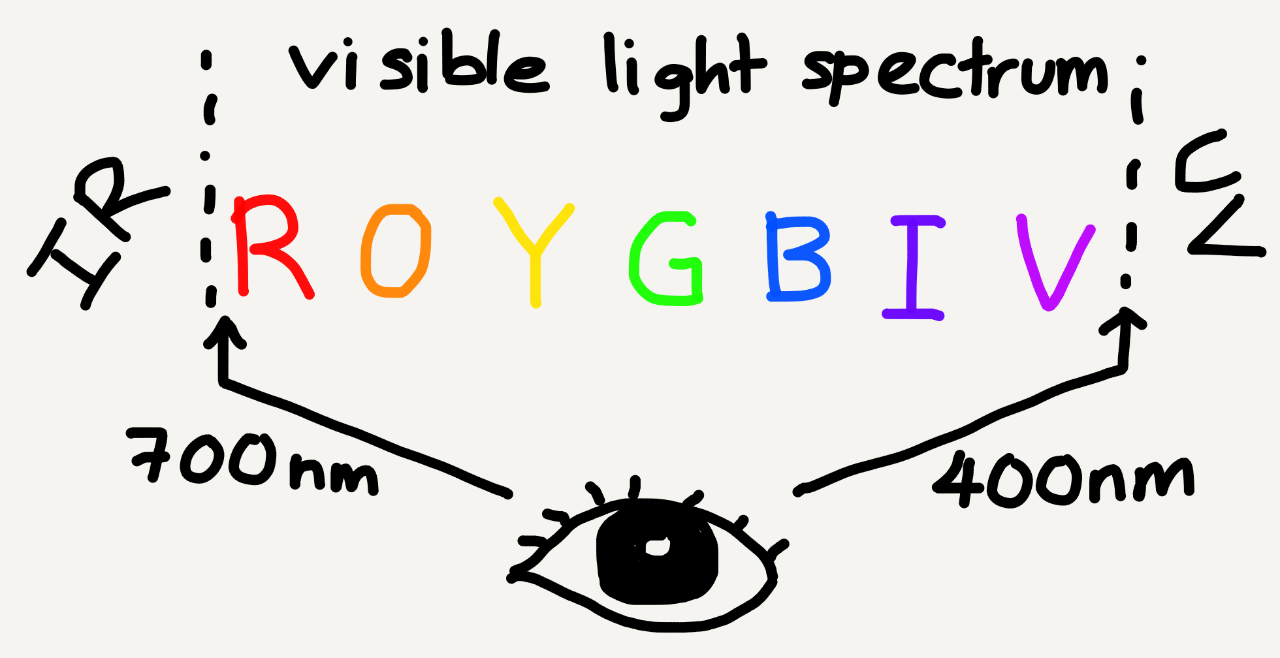 visible light spectrum
IR
R O Y G B I V
UV
700nm
400nm